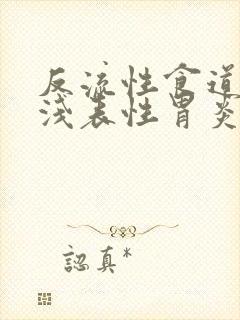 反流性食道
浅表性胃炎
認真*